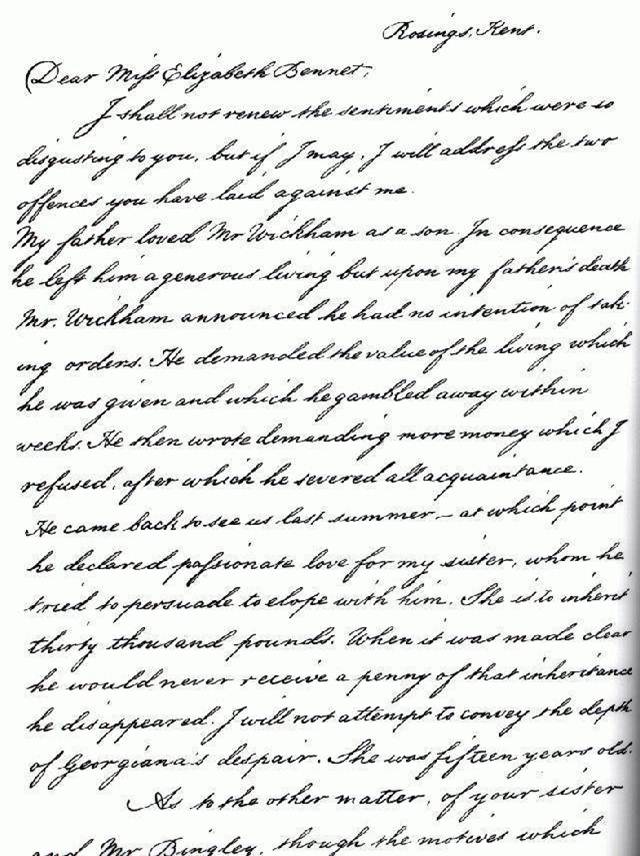 Rosings, Kent.
Dear Miss Elizabeth Bennet,
I shall not renew the sentiments which were so
disgusting to you, but if I may, I will address the two
offences you have laid against me.
My father loved Mr Wickham as a son. In consequence
he left him a generous living but upon my father's death
Mr. Wickham announced he had no intention of tak-
ing orders. He demanded the value of the living which
he was given and which he gambled away within
weeks. He then wrote demanding more money which I
refused, after which he severed all acquaintance.
He came back to see us last summer – at which point
he declared passionate love for my sister, whom he
tried to persuade to elope with him. She is to inherit
thirty thousand pounds. When it was made clear
he would never receive a penny of that inheritance
he disappeared. I will not attempt to convey the depth
of Georgiana's despair. She was fifteen years old.
As to the other matter, of your sister
and Mr Bingley, though the motives which